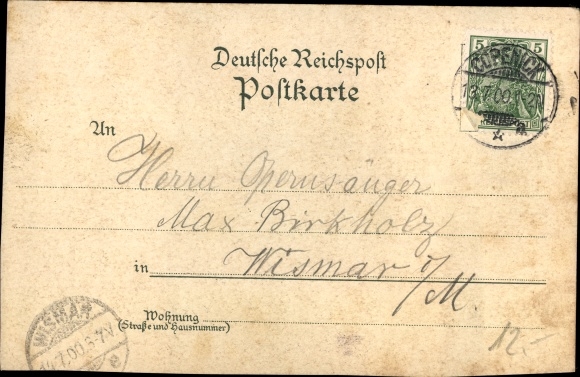 5 5
Deutsche Reichspost
Postkarte
CÖPENICK
13.7.00.
An
Herrn Opernsänger
Max Birkholz
in Wismar i/M.
Wohnung
(Straße und Hausnummer)
WISMAR
14.7.00.5-7V
12,-